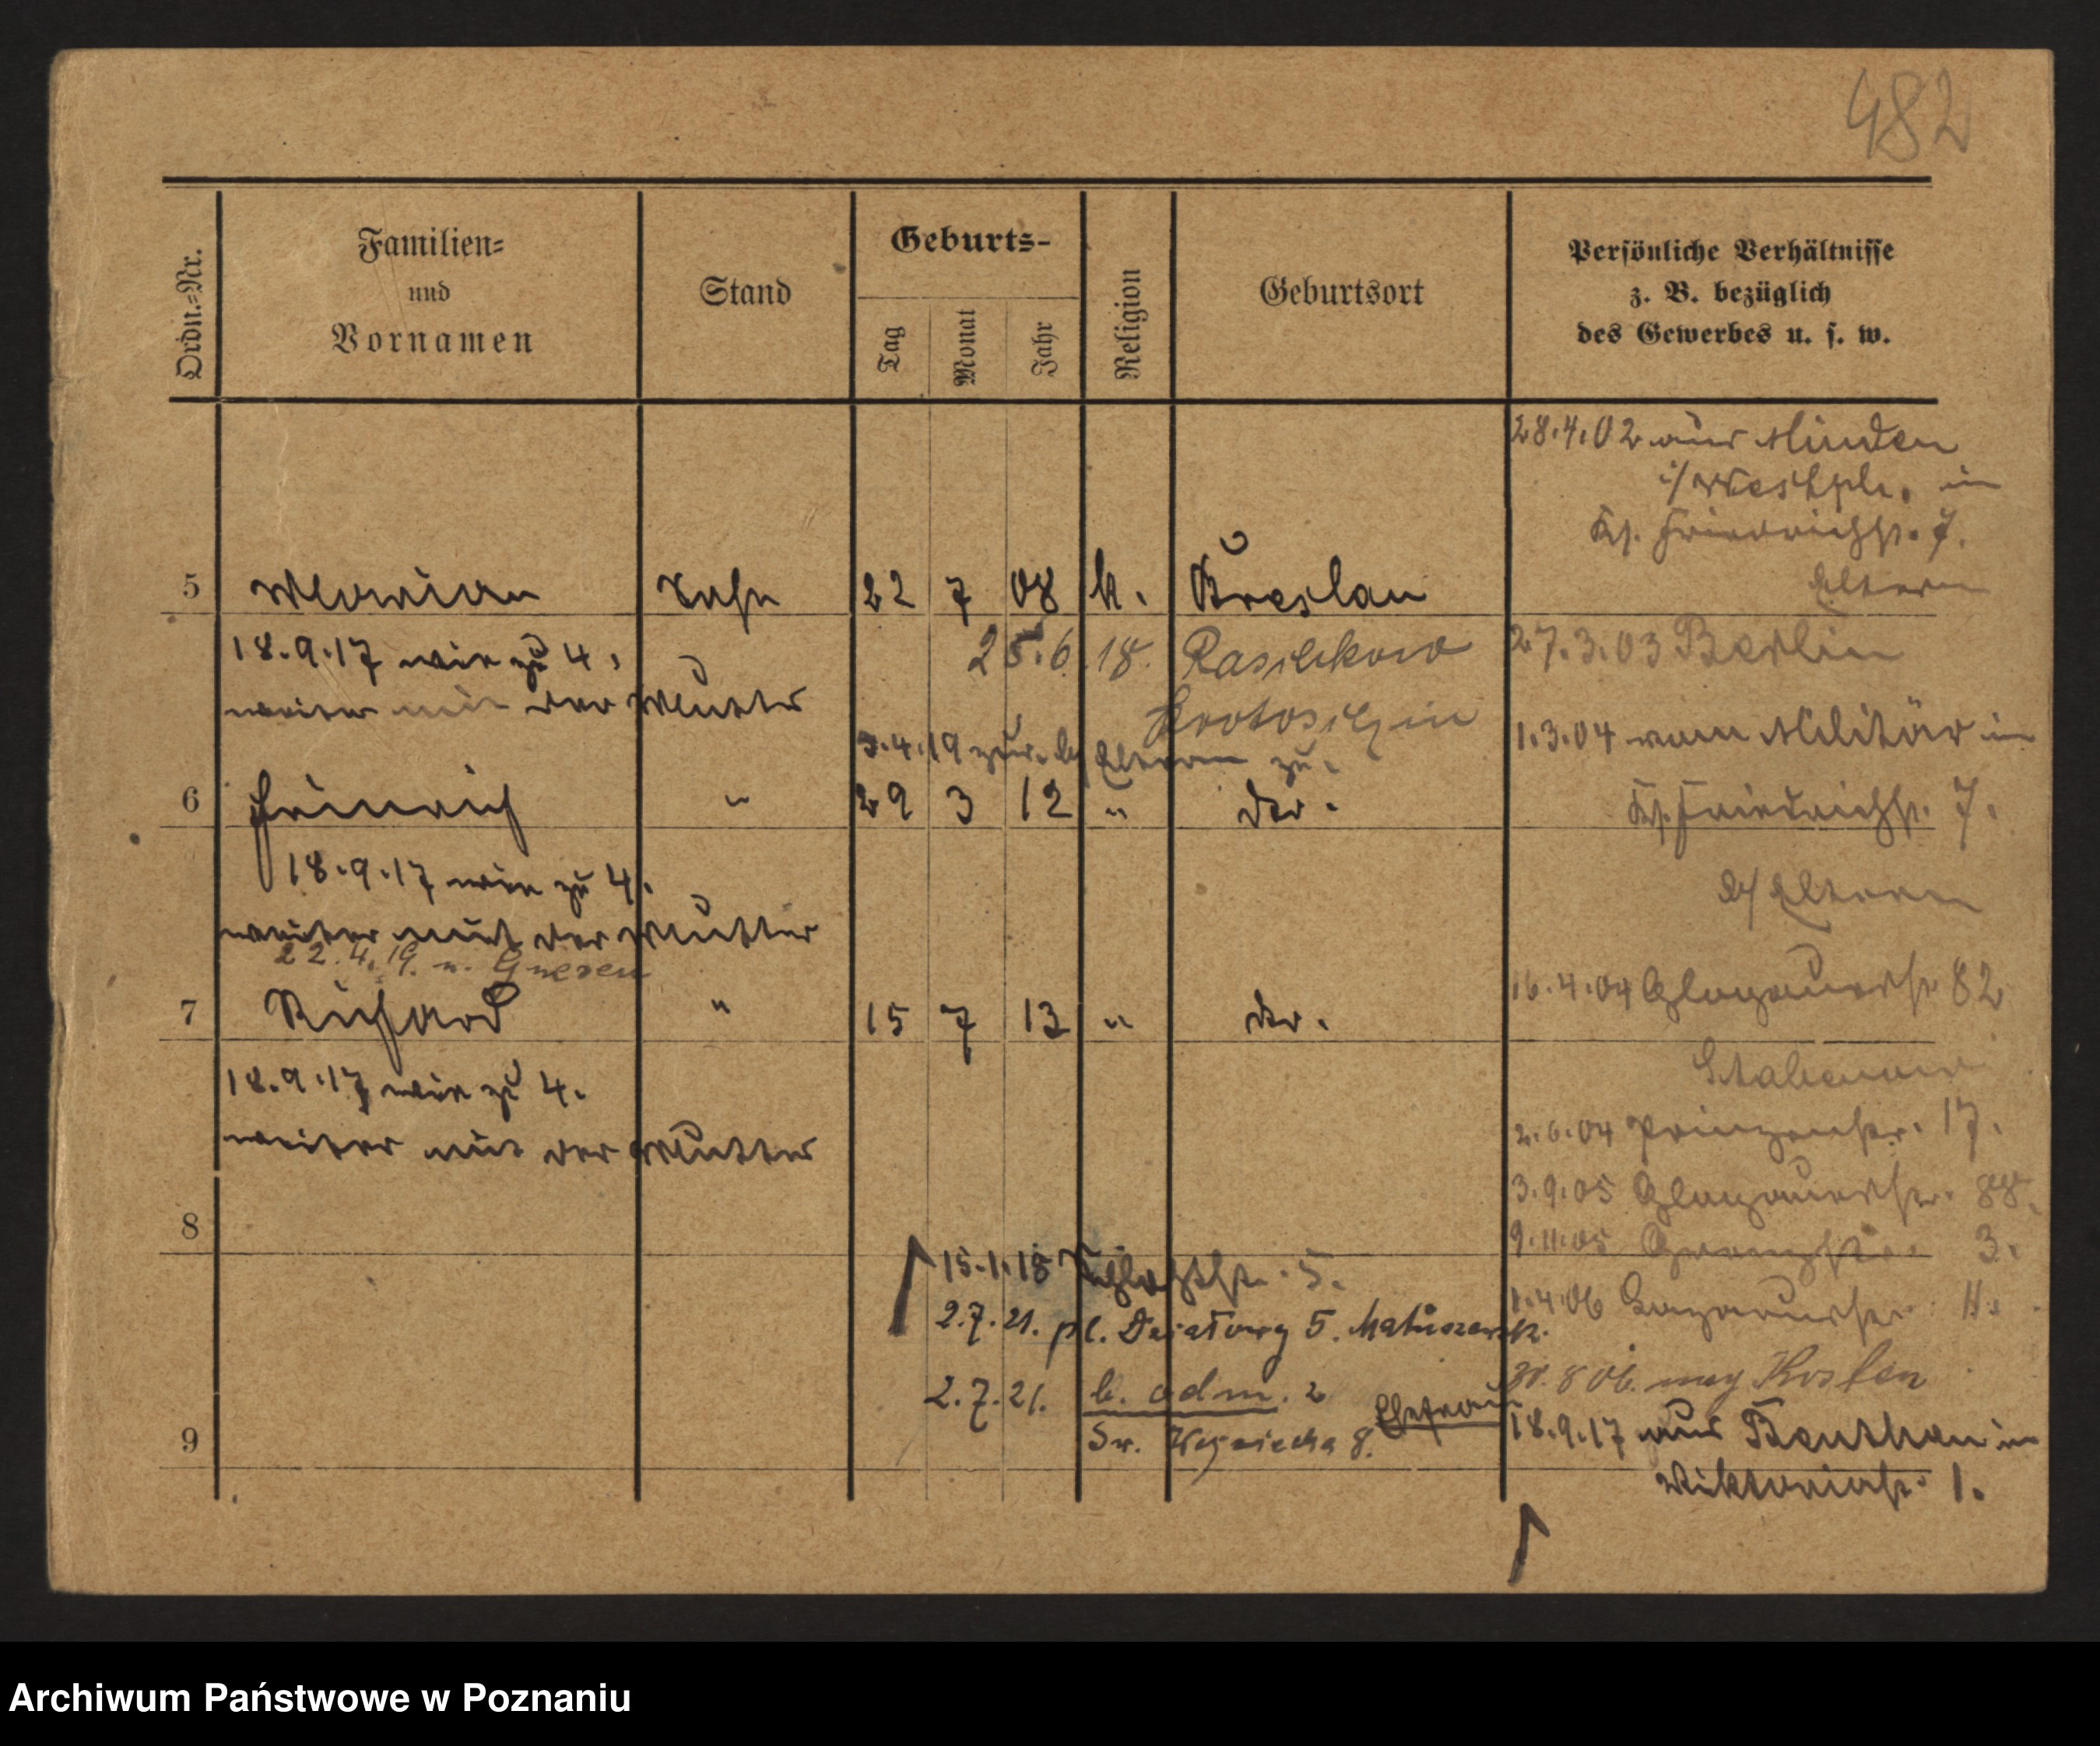 482
Ordn.-Nr.
Familien-
und
Vornamen
Stand
Geburts-
Tag
Monat
Jahr
Religion
Geburtsort
Persönliche Verhältnisse
z. B. bezüglich
des Gewerbes u. s. w.
28.4.02 aus Minden
i/Westph. in
Friedrichstr. 7.
Eltern
5 Sohn 22 7 08 k. Breslau
18.9.17 wie zu 4.
weiter mit der Mutter
25.6.18. Krotoschin
27.3.03 Berlin
1.3.04 vom Militär in
3.4.19 zur. b/ Eltern zu.
6 Heinrich " 29 3 12 " do.
Friedrichstr. 7.
b/ Eltern
18.9.17 wie zu 4.
weiter mit der Mutter
22.4.19. n. Gnesen
7 Richard " 15 7 13 " do.
16.4.04 Glogauerstr. 82
18.9.17 wie zu 4.
weiter mit der Mutter
2.6.04 Prinzenstr. 17.
3.9.05 Glogauerstr. 88.
8
9.11.05 3.
15.1.18 5.
1.4.06
2.7.21. pl. Działowy 5.
30.8.06. nach Kosten
2.7.21. b. adm. 2
Ehefrau
Św. Wojciecha 8.
9
18.9.17 aus Benthen in
Viktoriastr. 1.
Archiwum Państwowe w Poznaniu